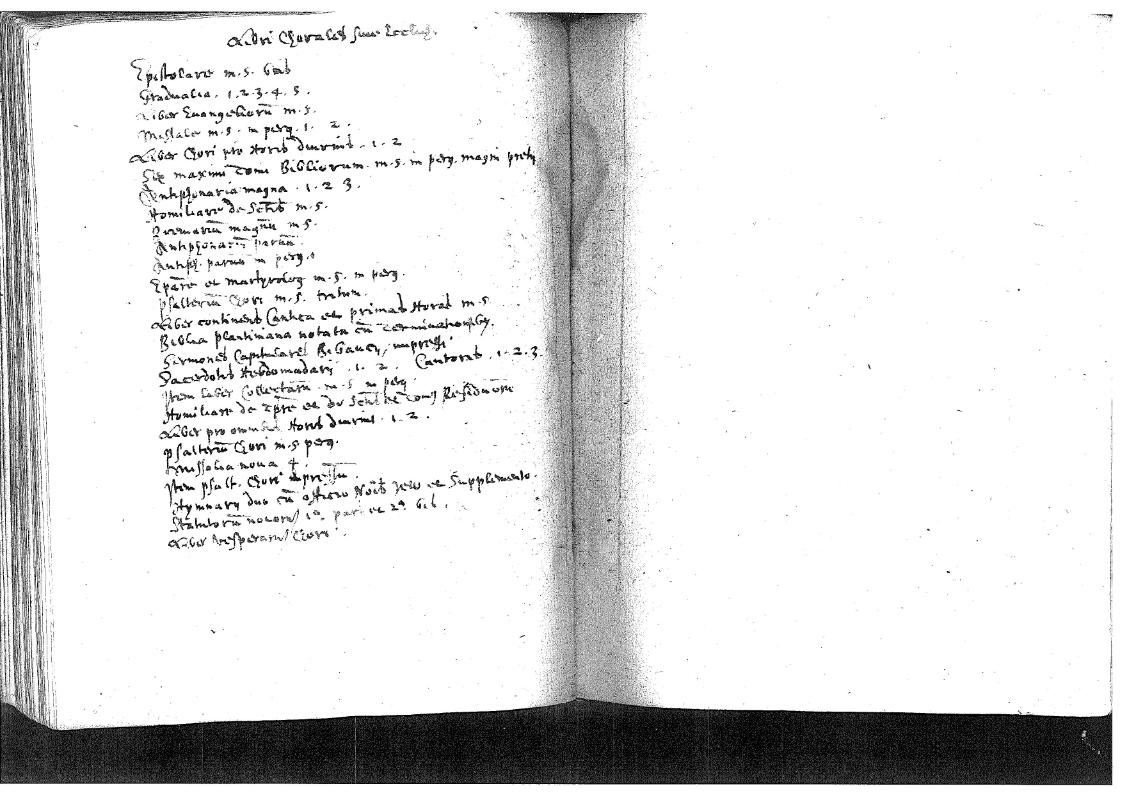 Libri Chorales sive Eccles.
Epistolare m.s. bis
Gradualia . 1 . 2 . 3 . 4 . 5 .
Liber Euangeliorū m.s.
Missale m.s. in perg. 1 . 2 .
Liber Chori pro Horis diurnis . 1 . 2
Sex maximi Tomi Bibliorum . m.s. in perg. magni pretij
Antiphonaria magna . 1 . 2 3 .
Homiliare de Sctis m.s.
Breviariū magnū m s.
Antiphonariū parvū
Antiph. parvū in perg.
et martyrolog m.s. in perg.
psalteriū Chori m.s. tritum.
Liber continens Cantica et primas Horas m.s
Biblia plantiniana notata cū terminationibq.
Sermones Capitulares impressi
Sacerdotis Hebdomadarij . 1 . 2 . Cantoris . 1 . 2 . 3 .
Item Liber Collectarū . m.s in perg
Homiliare de Tpre et de Sctis
Liber pro omnibus Horis diurnis . 1 . 2 .
psalteriū Chori m.s perg.
nova
Item psalt. Chori impressū
Hymnarij duo cū officio Nois Jesu et Supplemento
Statutorū novorū 1ᵃ pars et 2ᵃ bis .
Liber vesperarū Chori .